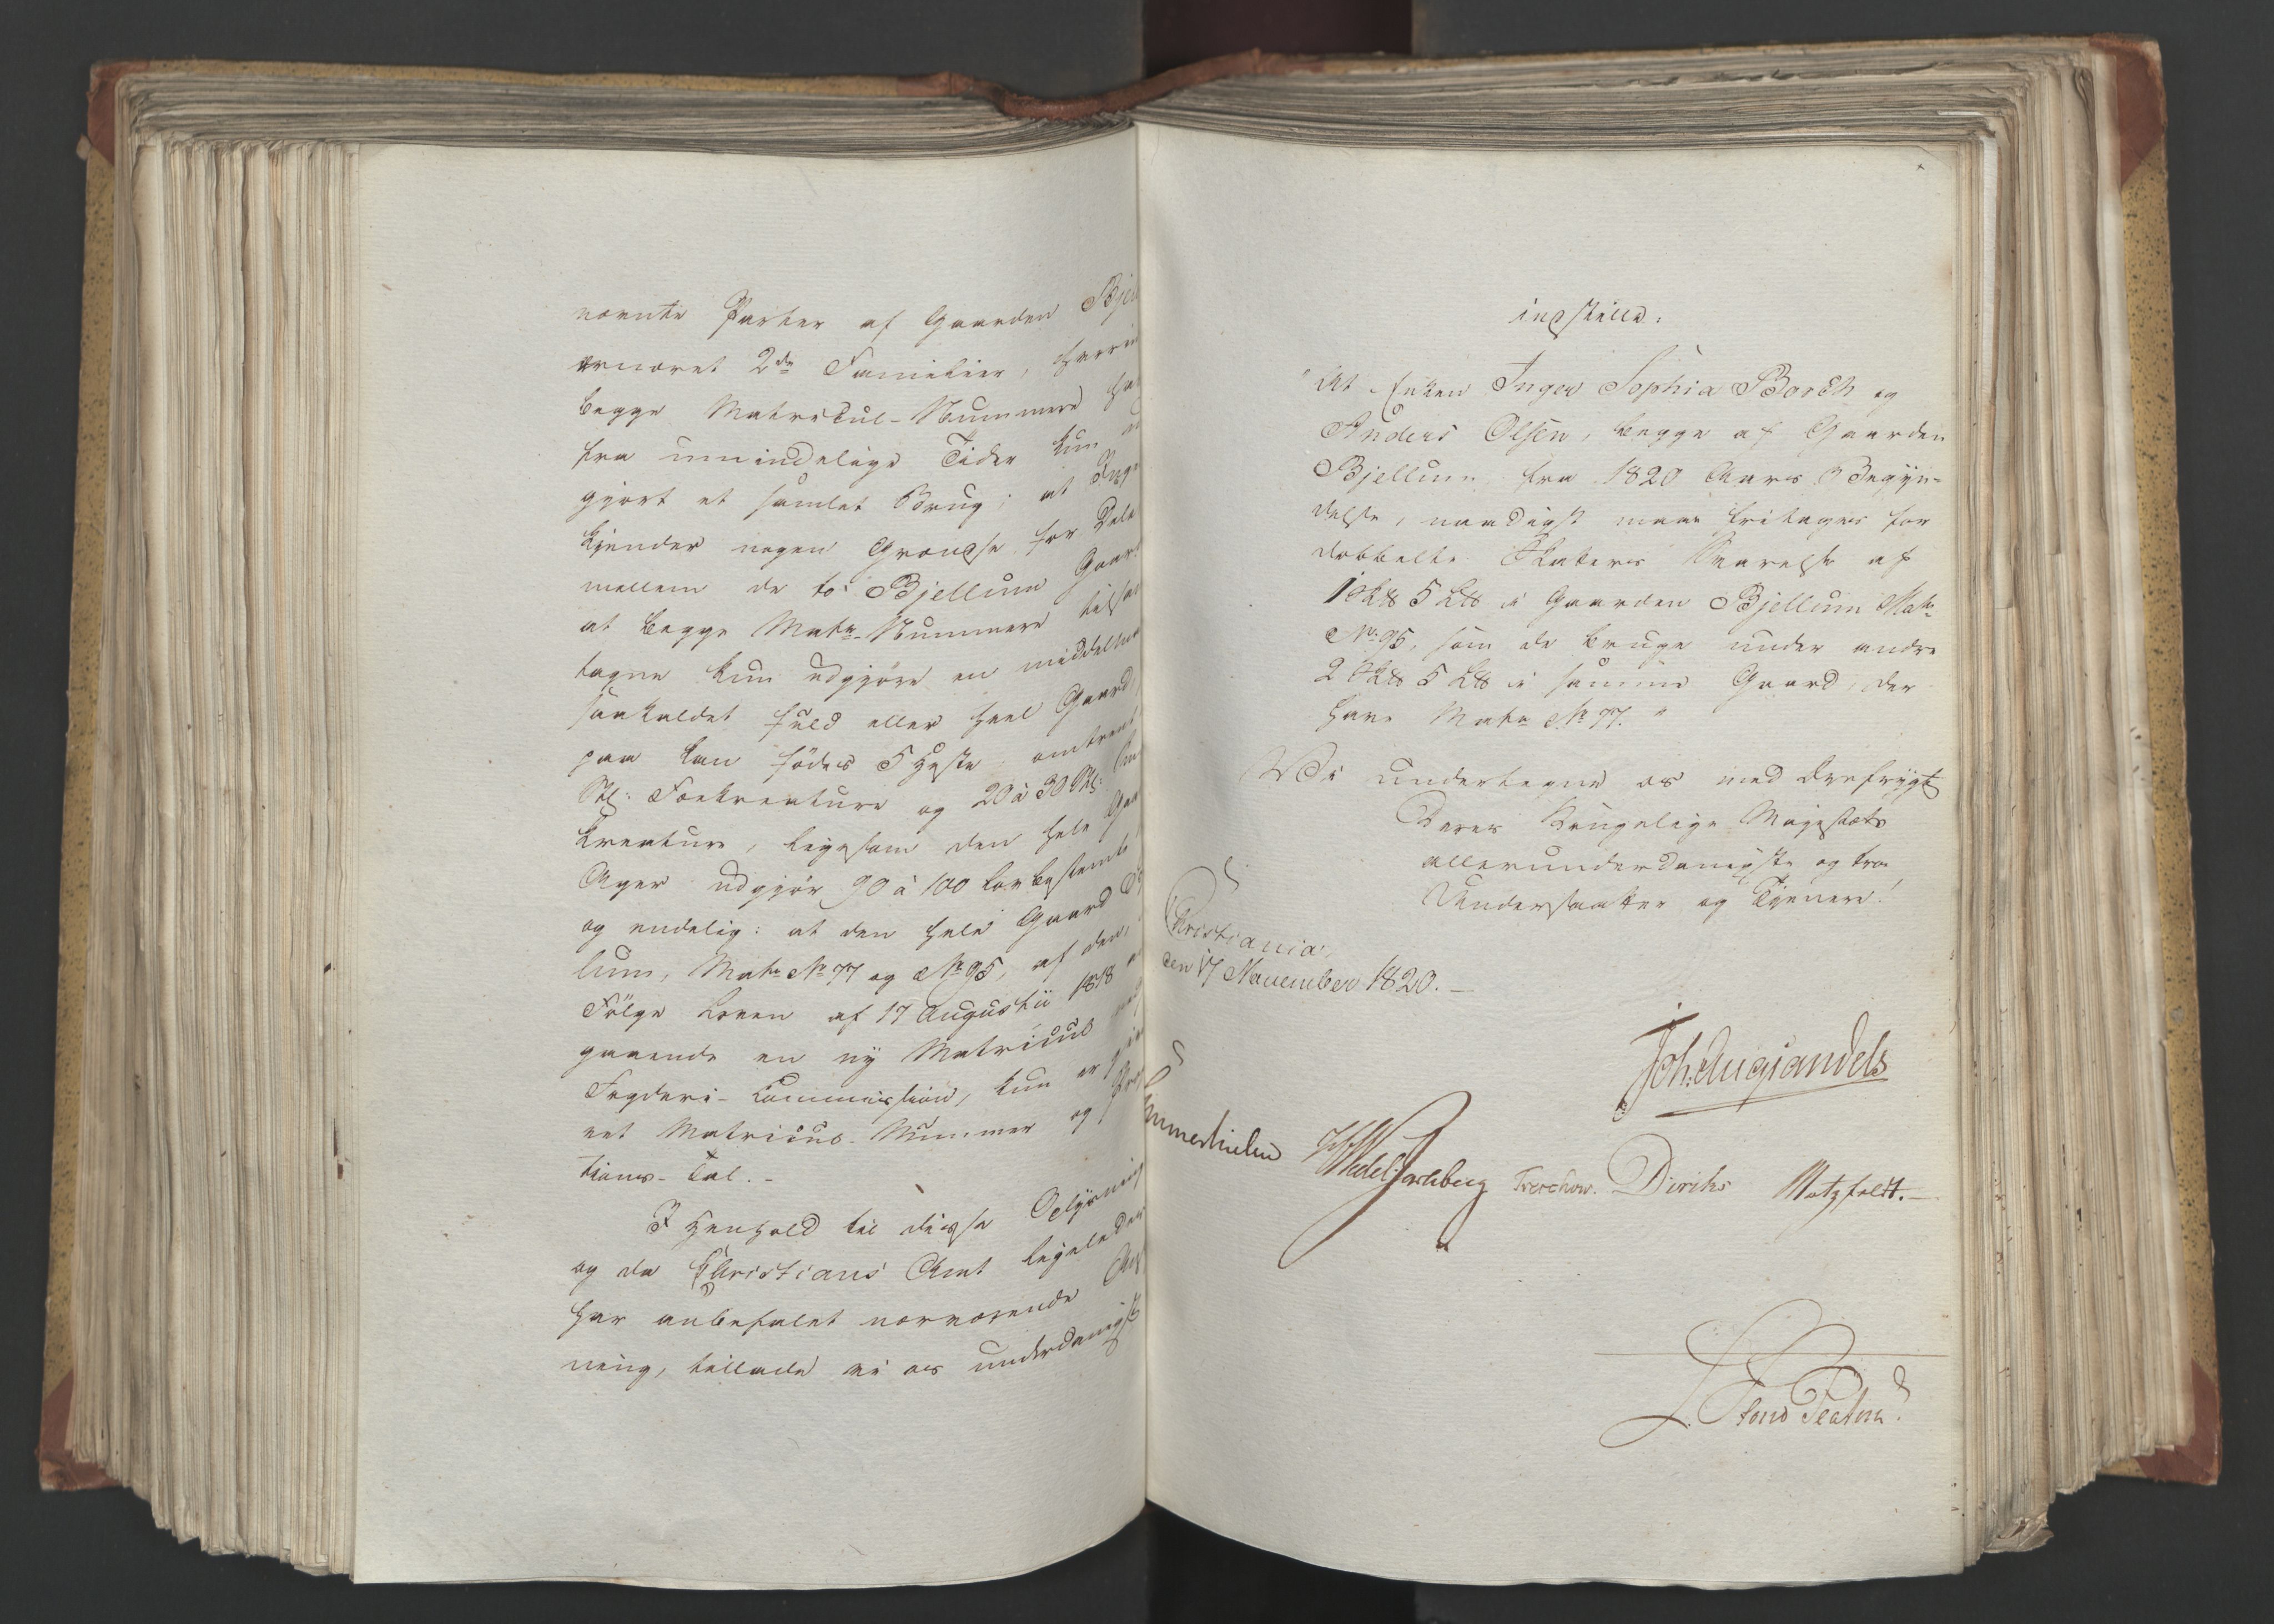 nævnte Parter af Gaarden Bjel
ernæret 2de Familier,
begge Matricul-Nummere
fra umindelige Tider kun
gjort et samlet Brug; at Inge
kjender nogen Grændse for Dele
mellem de to Bjellum Gaar
at begge Matr. Nummere tilsam
tagne kun udgjøre en middelm
saakaldet fuld eller heel Gaard,
paa kan födes 5 Heste omtrent
Stk: Foekreature og 20 à 30 Stk:
kreature, ligesom den hele
Ager udgjør 90 à 100 lovbestemte
og endelig: at den hele Gaard
lum, Matr. No 77 og No 95, af den,
Fölge Loven af 17 Augustii 1818
gaaende en ny Matricul
Fogderi-Commission, kun er
eet Matriculs-Nummer og
tions-Tal.-
I Henhold til disse Oplysning
og da Christians Amt ligeleden
har anbefalet nærværende
ning, tillade vi os underdanigst
indstille:
"At Enken Inger Sophia Borch og
Anders Olsen, begge af Gaarden
Bjellum fra 1820 Aars Begyn-
delse, naadigst maae fritages for
dobbelte Skatters Svarelse af
1 Sk℔ 5 L℔ i Gaarden Bjellum Matr.
No. 95, som de bruge under andre
2 Sk℔ 5 L℔ i samme Gaard, der
have Matr. No 77."
Vi undertegne os med Ærefrygt
Deres Kongelige Majestæts
allerunderdanigste og troe
Undersaatter og Tjenere!
Christiania,
den 17 November 1820.-
Joh. Aug. Sandels
Sommerhielm Wedel Jarlsberg Treschow. Diriks Motzfeldt.-